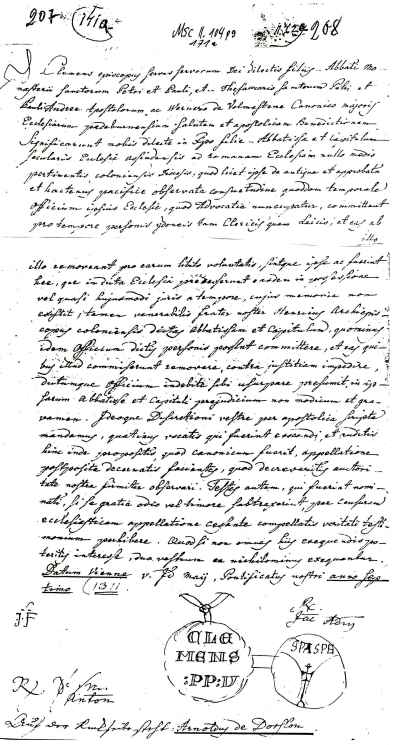 207 171a
Msc II. 104 pg 171a
208
Clemens episcopus servus servorum Dei dilectis filiis Abbati mo-
nasterii sanctorum Petri et Pauli, et Thesaurario sanctorum Petri et
Pauli Andree Apostolorum ac Wernero de Volmestene Canonico majoris
Ecclesiarum paderburnensium salutem et apostolicam Benedictionem
Significarunt nobis dilecte in Xpo filie Abbatissa et Capitulum
secularis Ecclesie assindensis ad romanam Ecclesiam nullo medio
pertinentis, coloniensis diocesis, quod licet ipse de antiqua et approbata
et hactenus pacifice observata consuetudine quoddam temporale
officium ipsius Ecclesie, quod Advocatia nuncupatur, committant
pro tempore personis ydoneis tam Clericis quam Laicis, et eas ab
illo
illo removeant pro earum libito voluntatis, sintque ipse ac fuerint
hec, que in dicta Ecclesia precesserunt eadem in possessione
vel quasi hujusmodi juris a tempore, cujus memoria non
existit; tamen venerabilis frater noster Henricus Archiepis-
copus coloniensis dictas Abbatissam et Capitulum, quominus
idem officium dictis personis possint committere, et eas qui-
bus illud commiserunt removere, contra justitiam impedire,
dictumque officium indebite sibi usurpare presumit, in ipsa-
rum Abbatisse et Capituli prejudicium non modicum et gra-
vamen. Ideoque Discretioni vestre per apostolica scripta
mandamus, quatinus vocatis qui fuerint evocandi, et auditis
hinc inde propositis, quod canonicum fuerit, appellatione
postposita decernatis facientes, quod decreveritis auctori-
tate nostra firmiter observari. Testes autem, qui fuerint nomi-
nati, si se gratia odio vel timore subtraxerint, per censuram
ecclesiasticam appellatione cessante compellatis veritati testi-
monium perhibere. Quod si non omnes hiis exequendis po-
tueritis interesse, duo vestrum ea nichilominus exequantur.
Datum Vienne v. Id maij, Pontificatus nostri anno sep-
timo (1311
J.F
Jac
CLE
MENS
:PP:V
SPASPE
Anton
Auf der Rückseite steht: Arnoldus de Dorslon